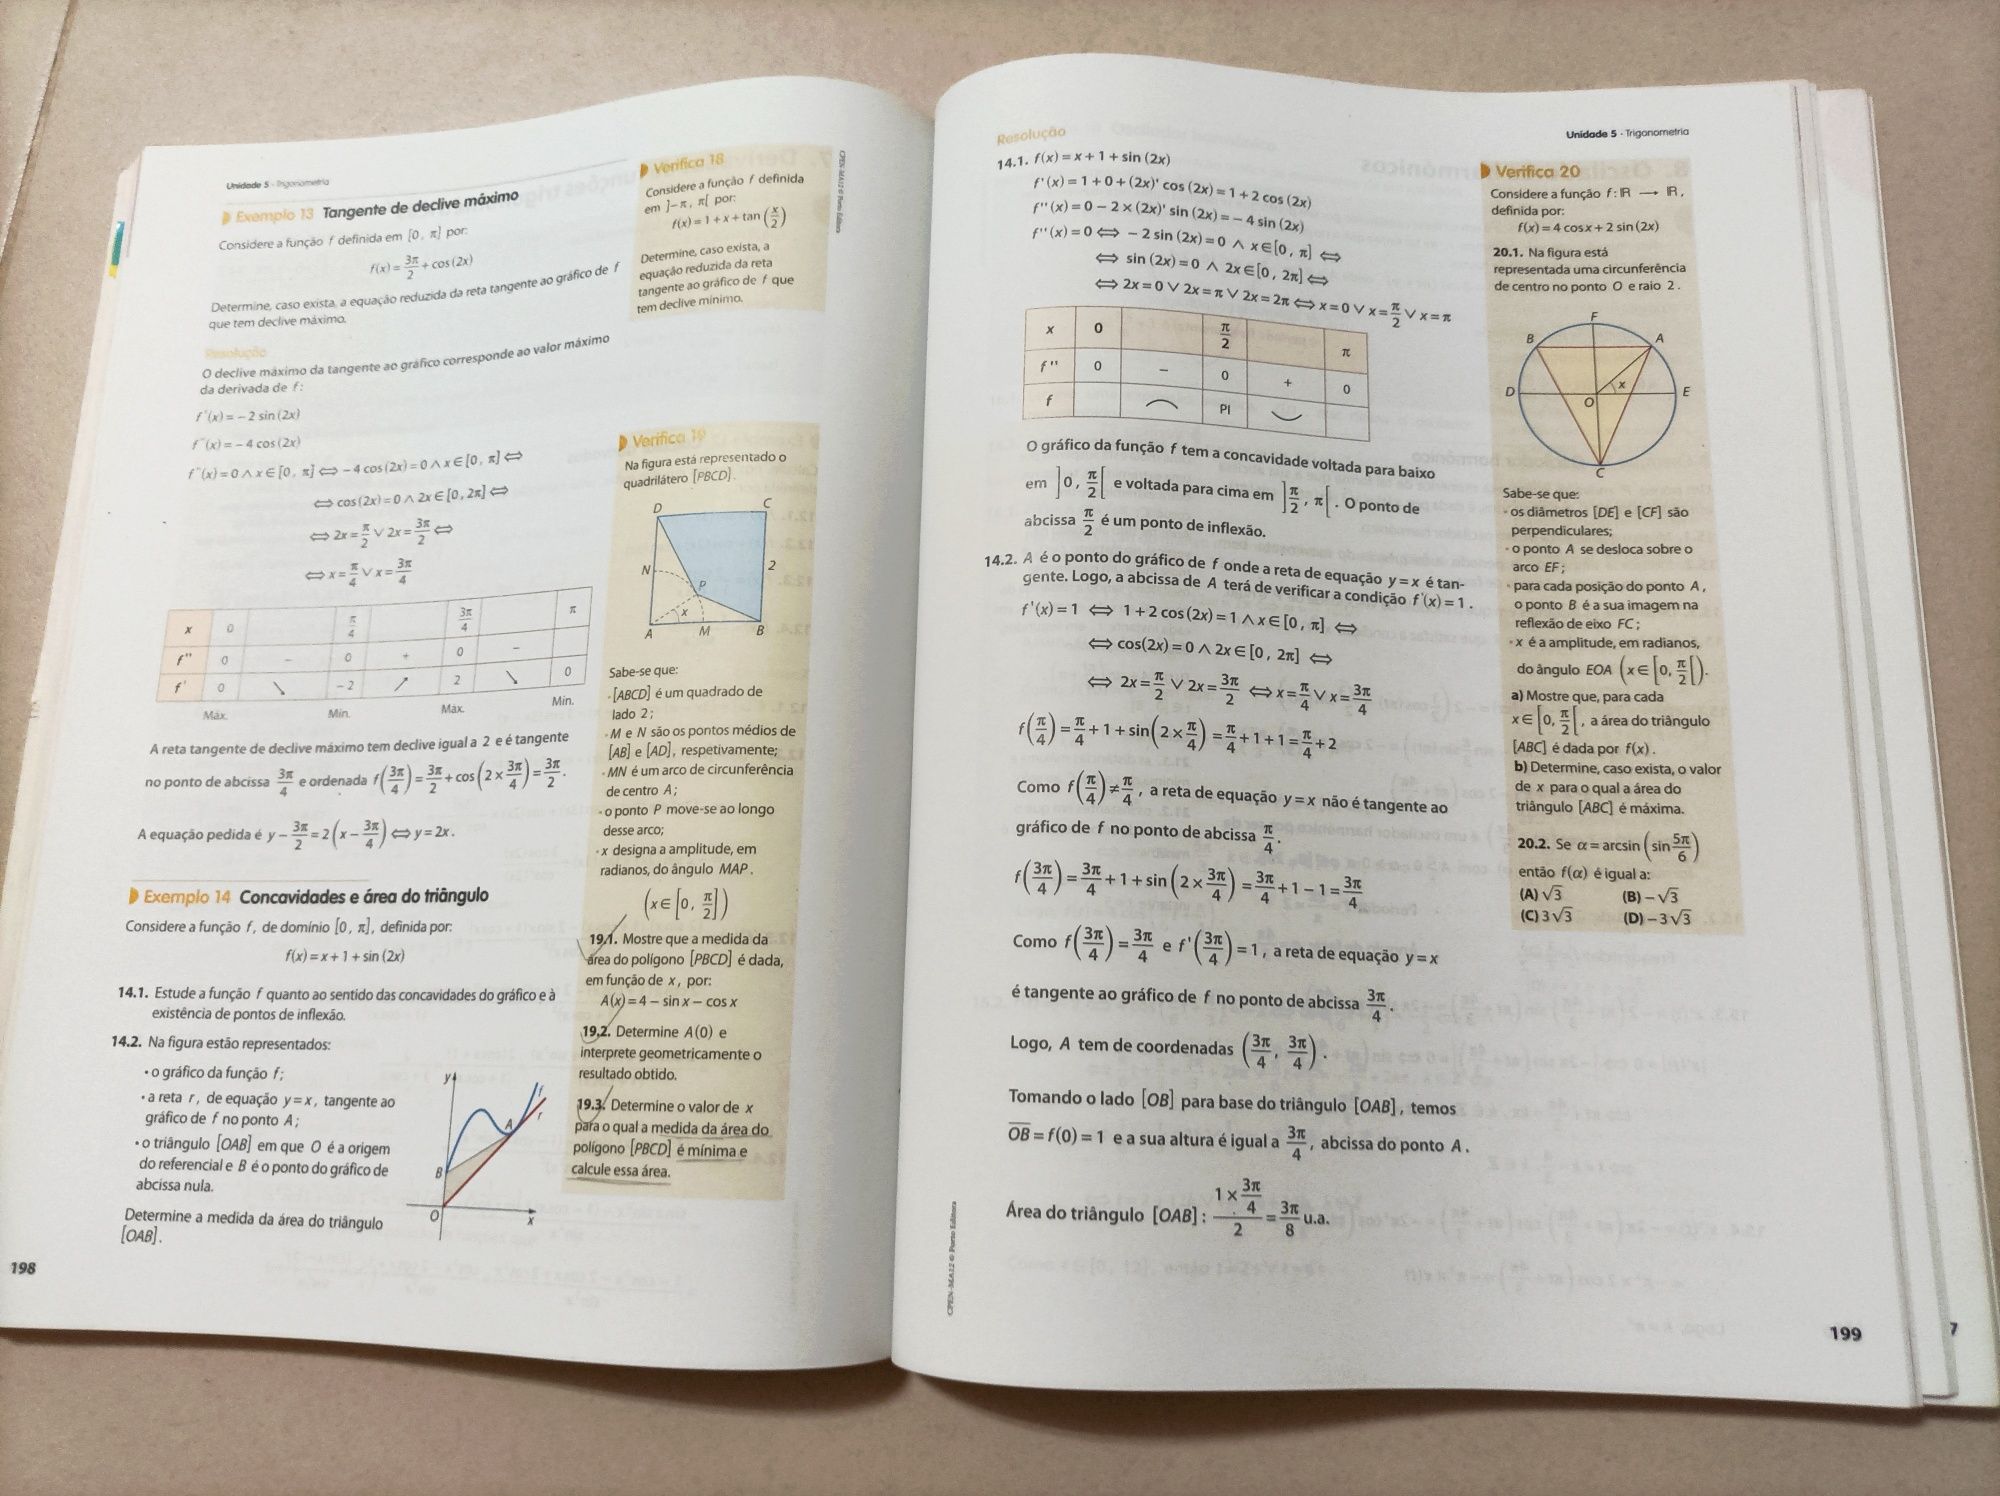 Unidade 5 - Trigonometria
Exemplo 13 Tangente de declive máximo
Considere a função f definida em [0, π] por:
f(x) = 3π/2 + cos (2x)
Determine, caso exista, a equação reduzida da reta tangente ao gráfico de f
que tem declive máximo.
Resolução
O declive máximo da tangente ao gráfico corresponde ao valor máximo
da derivada de f:
f'(x) = − 2 sin (2x)
f''(x) = − 4 cos (2x)
f''(x) = 0 ∧ x ∈ [0, π] ⟺ − 4 cos (2x) = 0 ∧ x ∈ [0, π] ⟺
⟺ cos (2x) = 0 ∧ 2x ∈ [0, 2π] ⟺
⟺ 2x = π/2 ∨ 2x = 3π/2 ⟺
⟺ x = π/4 ∨ x = 3π/4
x 0 π/4 3π/4 π
f'' 0 − 0 + 0 −
f' 0 ↘ −2 ↗ 2 ↘ 0
Máx. Mín. Máx. Mín.
A reta tangente de declive máximo tem declive igual a 2 e é tangente
no ponto de abcissa 3π/4 e ordenada f(3π/4) = 3π/2 + cos (2 × 3π/4) = 3π/2.
A equação pedida é y − 3π/2 = 2 (x − 3π/4) ⟺ y = 2x.
Exemplo 14 Concavidades e área do triângulo
Considere a função f, de domínio [0, π], definida por:
f(x) = x + 1 + sin (2x)
14.1. Estude a função f quanto ao sentido das concavidades do gráfico e à
existência de pontos de inflexão.
14.2. Na figura estão representados:
• o gráfico da função f;
• a reta r, de equação y = x, tangente ao
gráfico de f no ponto A;
• o triângulo [OAB] em que O é a origem
do referencial e B é o ponto do gráfico de
abcissa nula.
Determine a medida da área do triângulo
[OAB].
y
f
r
A
B
O
x
198
Verifica 18
Considere a função f definida
em ]−π, π[ por:
f(x) = 1 + x + tan (x/2)
Determine, caso exista, a
equação reduzida da reta
tangente ao gráfico de f que
tem declive mínimo.
Verifica 19
Na figura está representado o
quadrilátero [PBCD].
D C
N 2
P
x
A M B
Sabe-se que:
• [ABCD] é um quadrado de
lado 2;
• M e N são os pontos médios de
[AB] e [AD], respetivamente;
• MN é um arco de circunferência
de centro A;
• o ponto P move-se ao longo
desse arco;
• x designa a amplitude, em
radianos, do ângulo MAP.
(x ∈ [0, π/2])
19.1. Mostre que a medida da
área do polígono [PBCD] é dada,
em função de x, por:
A(x) = 4 − sin x − cos x
19.2. Determine A(0) e
interprete geometricamente o
resultado obtido.
19.3. Determine o valor de x
para o qual a medida da área do
polígono [PBCD] é mínima e
calcule essa área.
CPEN-MA12 © Porto Editora
Unidade 5 - Trigonometria
Resolução
14.1. f(x) = x + 1 + sin (2x)
f'(x) = 1 + 0 + (2x)' cos (2x) = 1 + 2 cos (2x)
f''(x) = 0 − 2 × (2x)' sin (2x) = − 4 sin (2x)
f''(x) = 0 ⟺ − 2 sin (2x) = 0 ∧ x ∈ [0, π] ⟺
⟺ sin (2x) = 0 ∧ 2x ∈ [0, 2π] ⟺
⟺ 2x = 0 ∨ 2x = π ∨ 2x = 2π ⟺ x = 0 ∨ x = π/2 ∨ x = π
x 0 π/2 π
f'' 0 − 0 + 0
f PI
O gráfico da função f tem a concavidade voltada para baixo
em ]0, π/2[ e voltada para cima em ]π/2, π[. O ponto de
abcissa π/2 é um ponto de inflexão.
14.2. A é o ponto do gráfico de f onde a reta de equação y = x é tan-
gente. Logo, a abcissa de A terá de verificar a condição f'(x) = 1.
f'(x) = 1 ⟺ 1 + 2 cos (2x) = 1 ∧ x ∈ [0, π] ⟺
⟺ cos(2x) = 0 ∧ 2x ∈ [0, 2π] ⟺
⟺ 2x = π/2 ∨ 2x = 3π/2 ⟺ x = π/4 ∨ x = 3π/4
f(π/4) = π/4 + 1 + sin(2 × π/4) = π/4 + 1 + 1 = π/4 + 2
Como f(π/4) ≠ π/4, a reta de equação y = x não é tangente ao
gráfico de f no ponto de abcissa π/4.
f(3π/4) = 3π/4 + 1 + sin (2 × 3π/4) = 3π/4 + 1 − 1 = 3π/4
Como f(3π/4) = 3π/4 e f'(3π/4) = 1, a reta de equação y = x
é tangente ao gráfico de f no ponto de abcissa 3π/4.
Logo, A tem de coordenadas (3π/4, 3π/4).
Tomando o lado [OB] para base do triângulo [OAB], temos
O̅B̅ = f(0) = 1 e a sua altura é igual a 3π/4, abcissa do ponto A.
Área do triângulo [OAB]: (1 × 3π/4)/2 = 3π/8 u.a.
CPEN-MA12 © Porto Editora
Verifica 20
Considere a função f: ℝ ⟶ ℝ,
definida por:
f(x) = 4 cos x + 2 sin (2x)
20.1. Na figura está
representada uma circunferência
de centro no ponto O e raio 2.
F
B A
D O x E
C
Sabe-se que:
• os diâmetros [DE] e [CF] são
perpendiculares;
• o ponto A se desloca sobre o
arco EF;
• para cada posição do ponto A,
o ponto B é a sua imagem na
reflexão de eixo FC;
• x é a amplitude, em radianos,
do ângulo EOA (x ∈ [0, π/2[).
a) Mostre que, para cada
x ∈ [0, π/2[, a área do triângulo
[ABC] é dada por f(x).
b) Determine, caso exista, o valor
de x para o qual a área do
triângulo [ABC] é máxima.
20.2. Se α = arcsin (sin 5π/6)
então f(α) é igual a:
(A) √3 (B) −√3
(C) 3√3 (D) −3√3
199
7